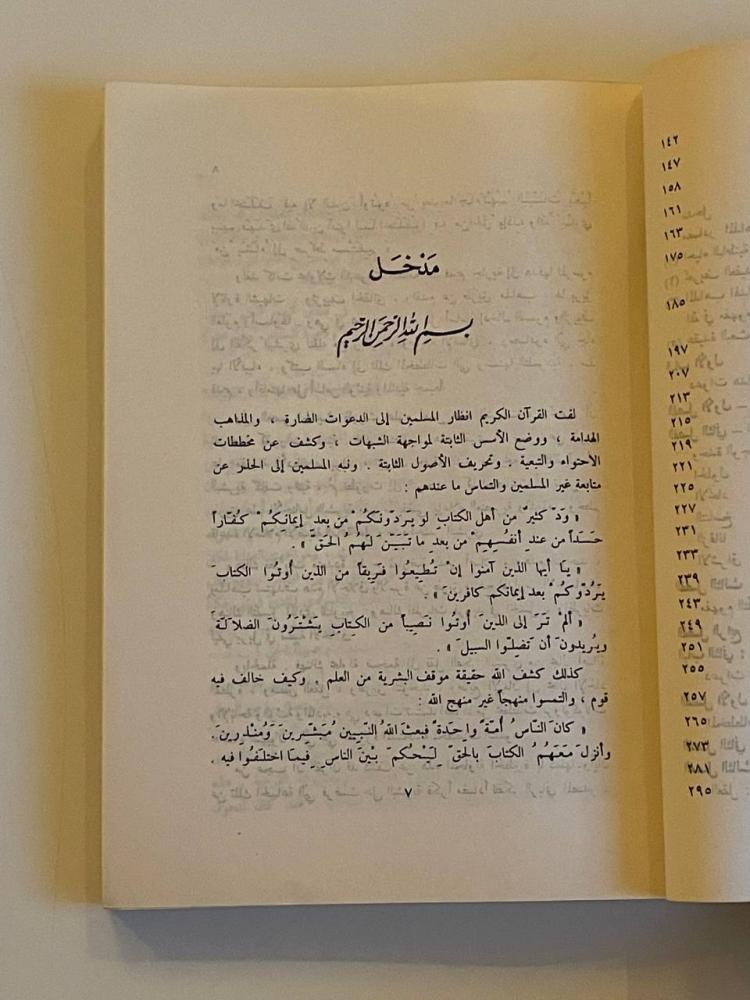 مَدْخَل
بسم الله الرحمن الرحيم
لفت القرآن الكريم انظار المسلمين إلى الدعوات الضارة ، والمذاهب
الهدامة ، ووضع الأسس الثابتة لمواجهة الشبهات ، وكشف عن مخططات
الأحتواء والتبعية . وتحريف الأصول الثابتة . ونبه المسلمين إلى الحذر عن
متابعة غير المسلمين والتماس ما عندهم :
« وَدّ كثيرٌ من أهل الكتاب لو يَردّونَكُمْ من بعد إيمانِكُمْ كُفّاراً
حَسَداً من عندِ أنفسِهِمْ من بعدِ ما تَبَيّنَ لَهُمُ الحَقُّ » .
« يَا أيها الذين آمنوا إنْ تُطيعُوا فَريقاً من الذين أوتُوا الكتابَ
يَرُدّوكُمْ بعد إيمانكم كافرينَ » .
« ألمْ تَرَ إلى الذينَ أُوتُوا نَصِيباً من الكِتابِ يَشْتَرُونَ الضلالَةَ
ويُريدُونَ أن تَضِلّوا السبيلَ » .
كذلك كشف الله حقيقة موقف البشرية من العلم . وكيف خالف فيه
قوم ، والتمسوا منهجاً غير منهج الله :
« كانَ النّاسُ أُمّةً واحدةً فبعثَ اللهُ النّبيينَ مُبَشّرينَ وَمُنْذرينَ .
وأنزلَ مَعَهُمُ الكتابَ بالحَقّ لِيَحْكمَ بَيْنَ الناسِ فِيمَا اختَلَفُوا فيه .
٧
١٤٢
١٤٧
١٥٨
١٦١
١٦٣
١٧٥
١٨٥
١٩٧
٢٠٧
٢١٣
٢١٥
٢١٩
٢٢١
٢٢٥
٢٢٧
٢٣١
٢٣٣
٢٣٩
٢٤٣
٢٤٩
٢٥١
٢٥٥
٢٥٧
٢٦٥
٢٧٣
٢٨١
٢٩٥